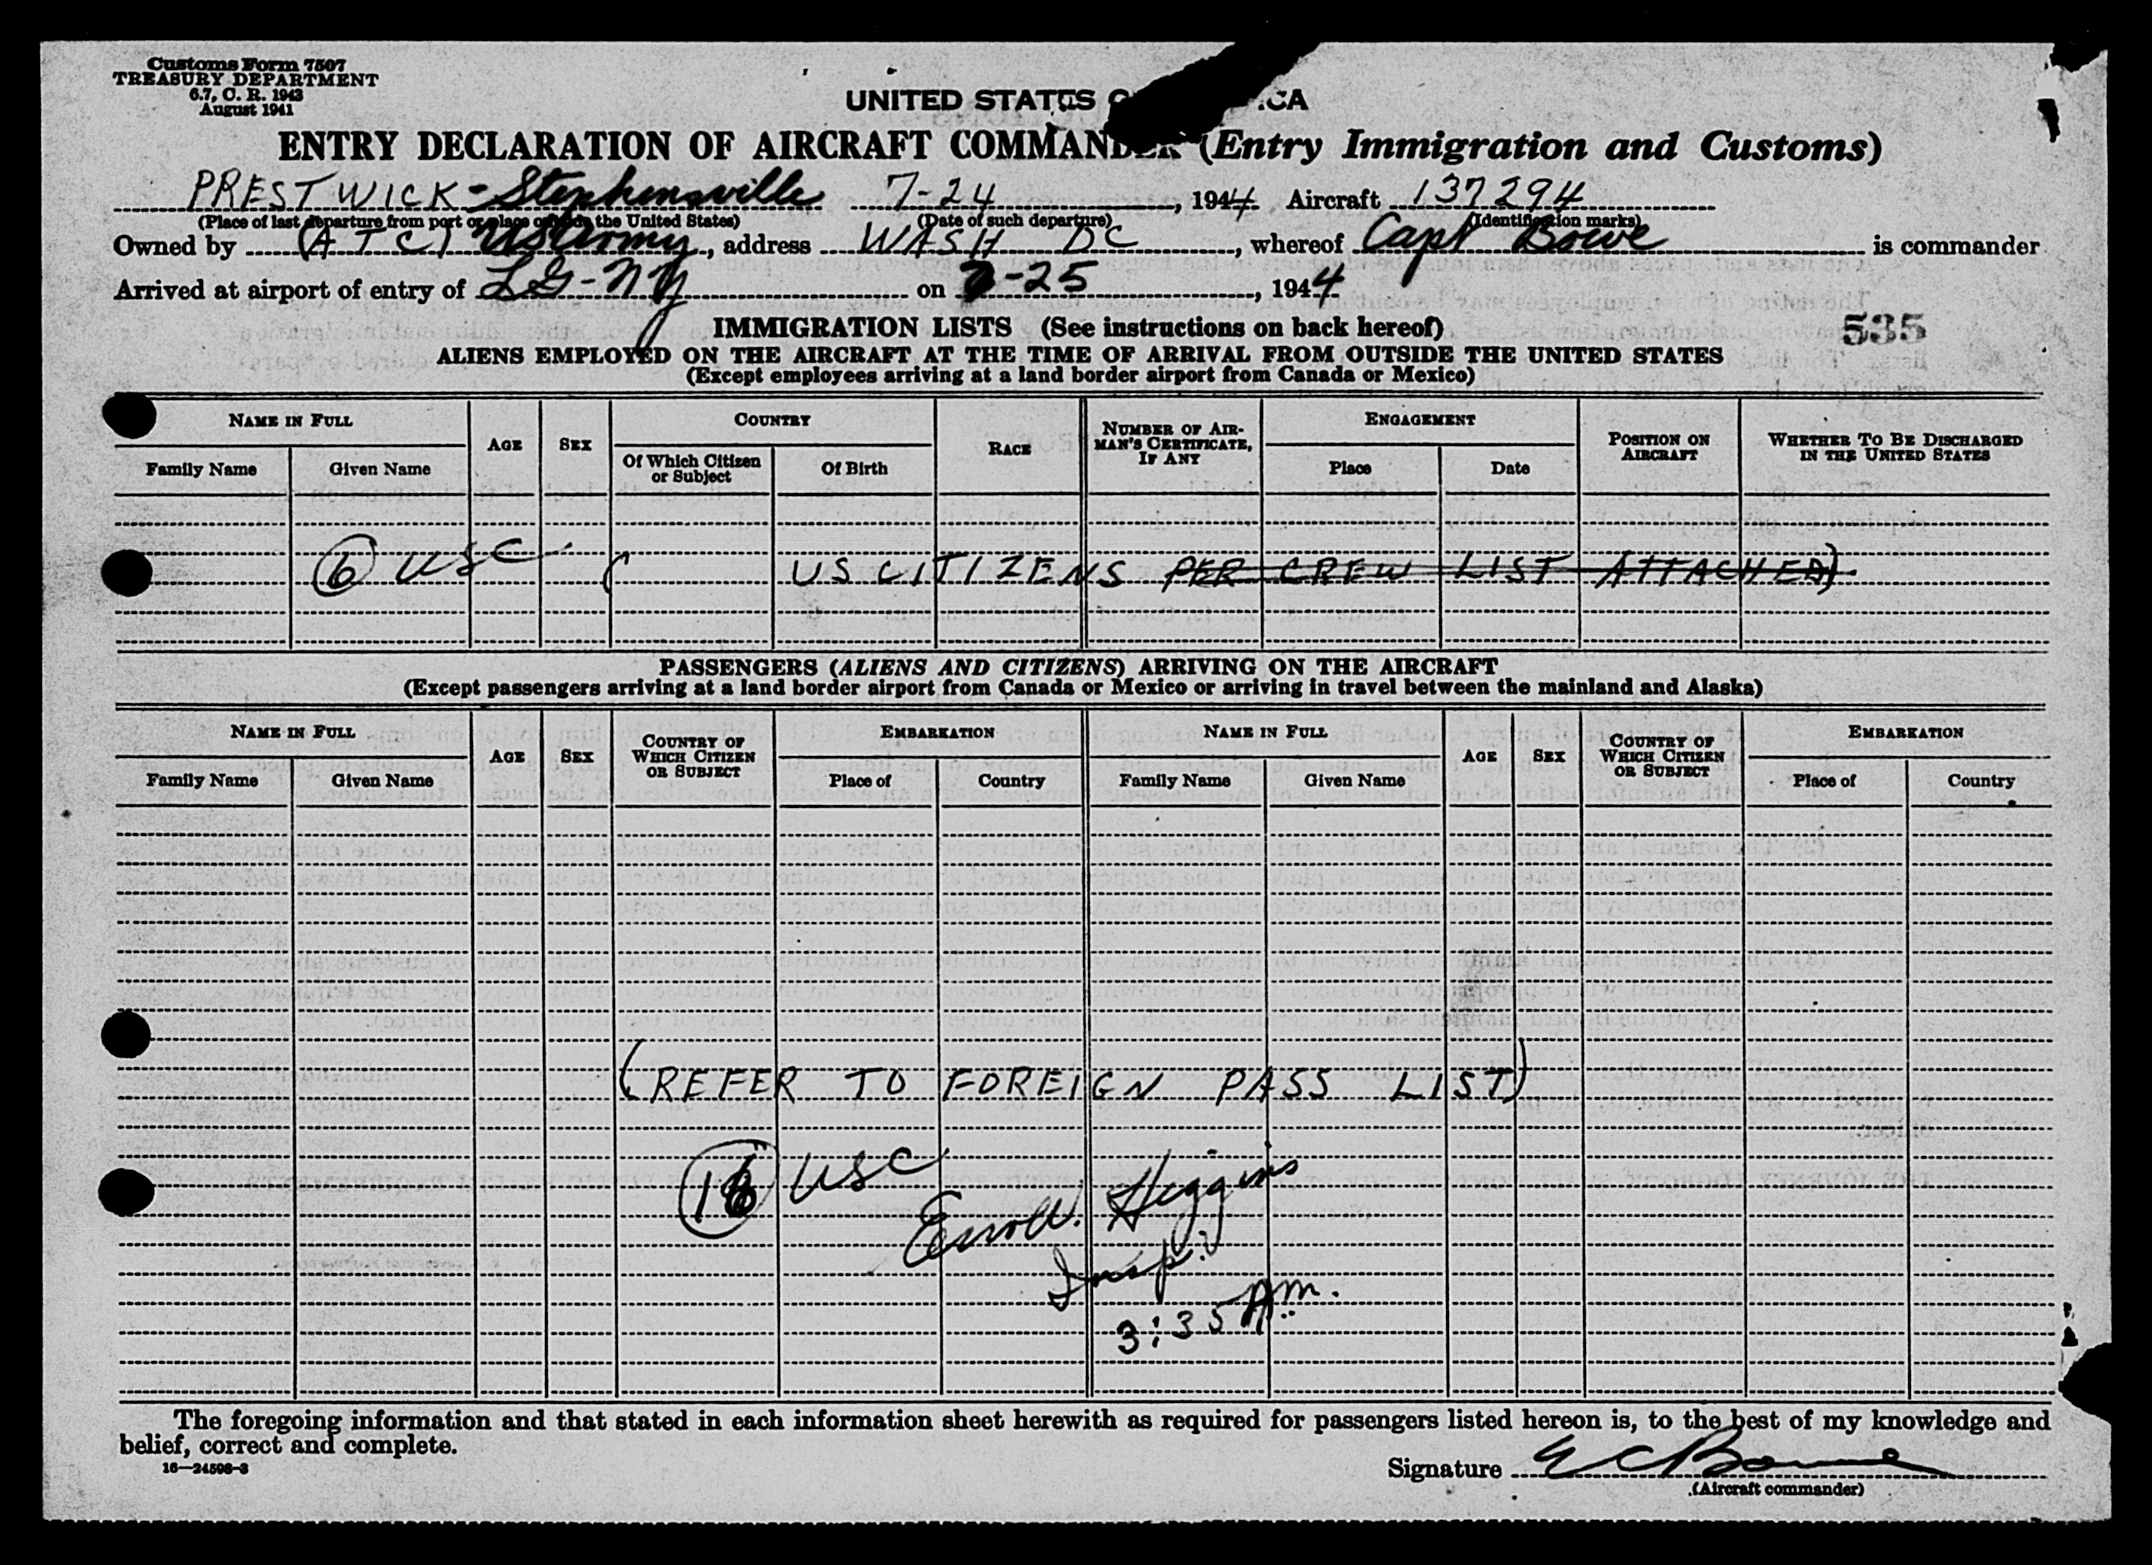 Customs Form 7507
TREASURY DEPARTMENT
6.7, C. R. 1943
August 1941
UNITED STATES
ENTRY DECLARATION OF AIRCRAFT COMMANDER (Entry Immigration and Customs)
PRESTWICK - Stephensville 7-24, 1944 Aircraft 137294
(Place of last departure from port or place outside the United States) (Date of such departure) (Identification marks)
Owned by (ATC) US Army, address WASH DC, whereof Capt Bowe is commander
Arrived at airport of entry of LG-NY on 7-25, 1944
IMMIGRATION LISTS (See instructions on back hereof)
535
ALIENS EMPLOYED ON THE AIRCRAFT AT THE TIME OF ARRIVAL FROM OUTSIDE THE UNITED STATES
(Except employees arriving at a land border airport from Canada or Mexico)
NAME IN FULL AGE SEX COUNTRY RACE NUMBER OF AIRMAN'S CERTIFICATE, IF ANY ENGAGEMENT POSITION ON AIRCRAFT WHETHER TO BE DISCHARGED IN THE UNITED STATES
Family Name Given Name Of Which Citizen or Subject Of Birth Place Date
6 USC (US CITIZENS PER CREW LIST ATTACHED)
PASSENGERS (ALIENS AND CITIZENS) ARRIVING ON THE AIRCRAFT
(Except passengers arriving at a land border airport from Canada or Mexico or arriving in travel between the mainland and Alaska)
NAME IN FULL AGE SEX COUNTRY OF WHICH CITIZEN OR SUBJECT EMBARKATION NAME IN FULL AGE SEX COUNTRY OF WHICH CITIZEN OR SUBJECT EMBARKATION
Family Name Given Name Place of Country Family Name Given Name Place of Country
(REFER TO FOREIGN PASS LIST)
16 USC
Errol W. Higgins
Insp.
3:35 AM.
The foregoing information and that stated in each information sheet herewith as required for passengers listed hereon is, to the best of my knowledge and
belief, correct and complete.
16—24598-3
Signature E C Bowe
(Aircraft commander)